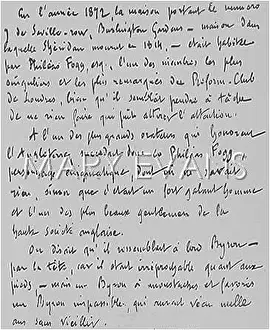 En l'année 1872, la maison portant le numéro
7 de Saville-row, Burlington Gardens – maison dans
laquelle Shéridan mourut en 1814, – était habitée
par Philéas Fogg, esq., l'un des membres les plus
singuliers et les plus remarqués du Reform-Club
de Londres, bien qu'il semblât prendre à tâche
de ne rien faire qui pût attirer l'attention.
A l'un des plus grands orateurs qui honorent
l'Angleterre, succédait donc ce Philéas Fogg,
personnage énigmatique, dont on ne savait
rien, sinon que c'était un fort galant homme
et l'un des plus beaux gentlemen de la
haute société anglaise.
On disait qu'il ressemblait à lord Byron –
par la tête, car il était irréprochable quant aux
pieds – mais un Byron à moustaches et favoris
un Byron impassible, qui aurait vécu mille
ans sans vieillir.
MARY EVANS